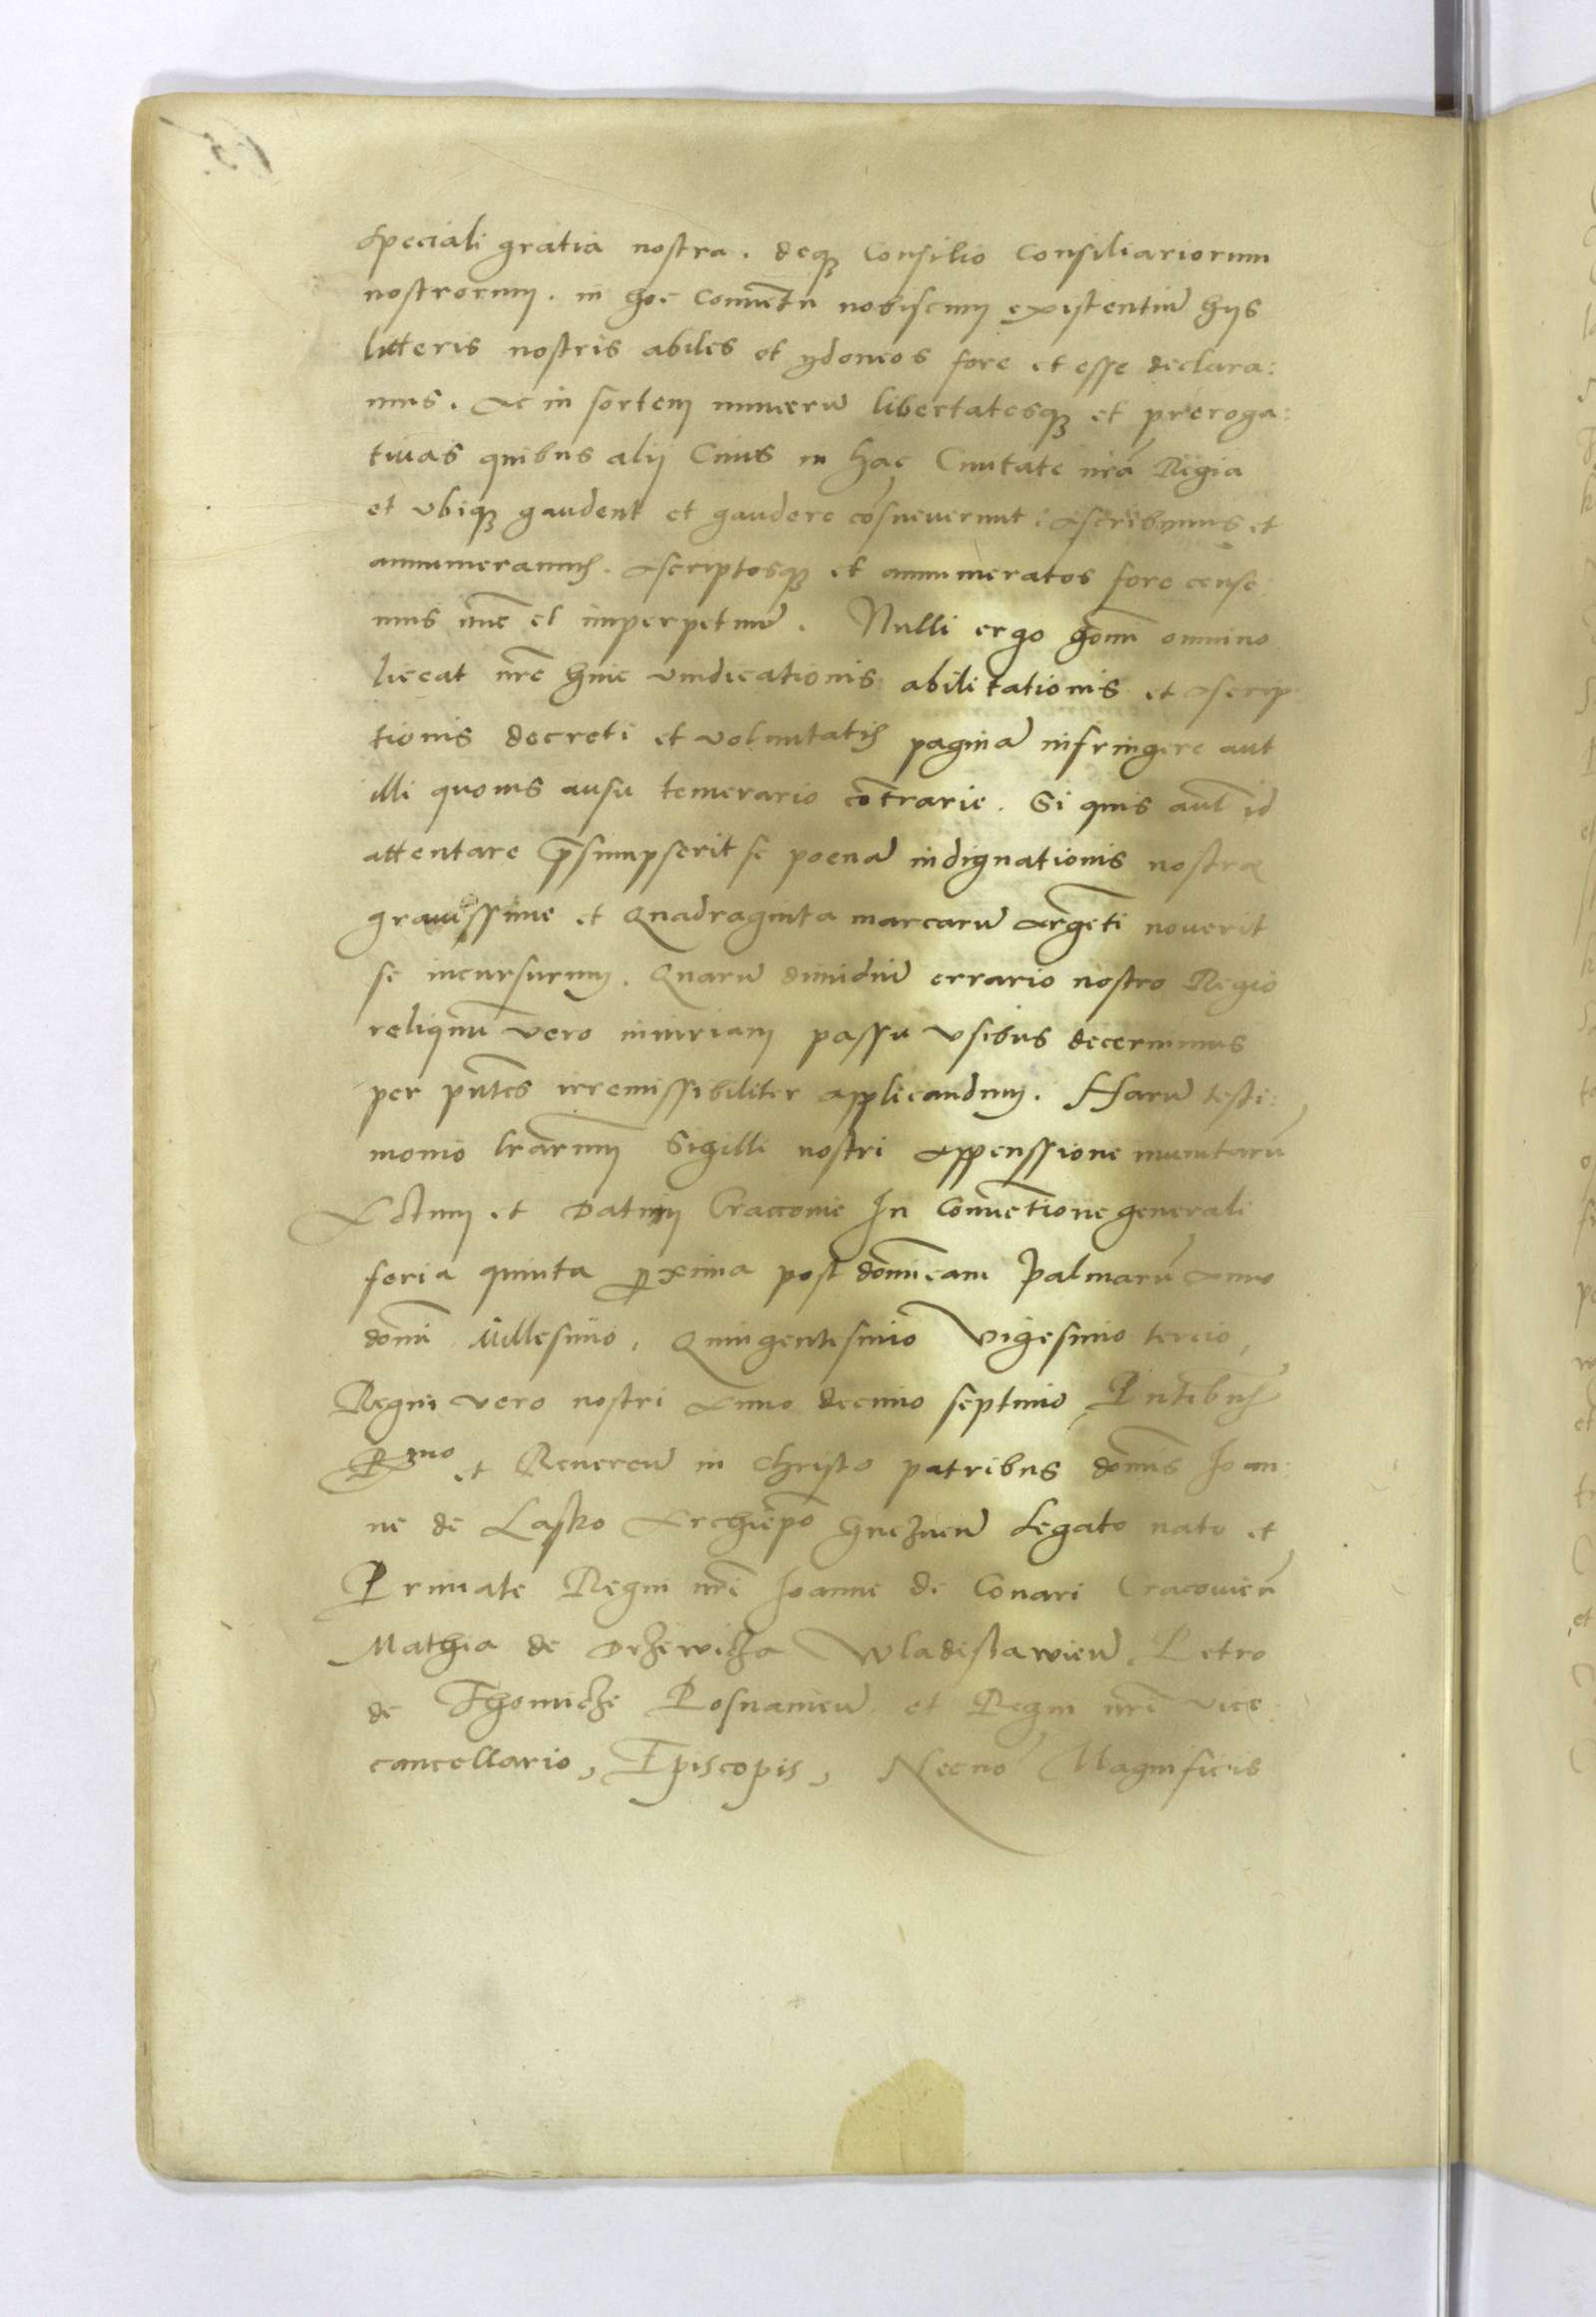 speciali gratia nostra. deq₃ Consilio Consiliariorum
nostrorum. in hoc Conuētu nobiscum existentiū hijs
litteris nostris abiles et ydoneos fore et esse declara:
mus. Ac in sortem numerū libertatesq₃ et preroga:
tiuas quibus alij Ciues in hac Ciuitate nrā Regia
et vbiq₃ gaudent et gaudere cōsueuerunt: ascribimus et
annumeramus. ascriptosq₃ et annumeratos fore cense
mus nūc et imperpetuū. Nulli ergo homī omnino
liceat nrē huic vindicationis abilitationis et ascrip
tionis decreti et voluntatis paginā infringere aut
illi quouis ausu temerario cōtrarie. Si quis aut̄ id
attentare p̄sumpserit se poenā indignationis nostrae
grauissime et Quadraginta marcarū Argēti nouerit
se incursurum. Quarū dimidiū errario nostro Regio
reliquū vero iniuriam passu vsibus decernimus
per pn̄tes irremissibiliter applicandum. Harū testi:
monio lrārum Sigilli nostri appenssione munitarū
Actum et Datum Craccouie In Conuētione generali
feria quinta p̄xima post domīcam Palmarū Anno
domī Millesimo, Quingentesimo Vigesimo tercio,
Regni vero nostri Anno decimo septimo, Pn̄tibus
Rmo et Reuereñ in Christo patribus domīs Joan:
ne de Lasko Archiepō Gneznen̄ Legato nato et
Primate Regni nrī Joanne de Conari Cracouien̄
Mathia de Drzewicza Wladislawien̄, Petro
de Thomicze Posnanien̄ et Regni nrī vice
cancellario, Episcopis, Necnō Magnificis